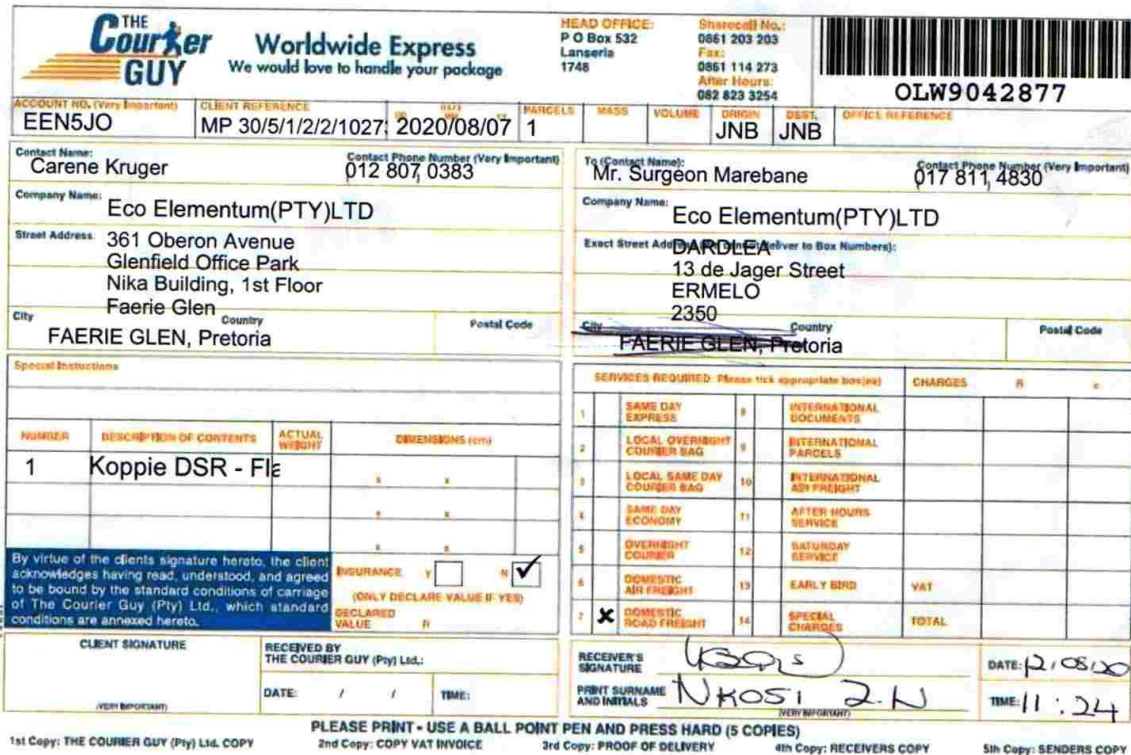 THE
Courier
GUY
Worldwide Express
We would love to handle your package
HEAD OFFICE:
P O Box 532
Lanseria
1748
Sharecall No.:
0861 203 203
Fax:
0861 114 273
After Hours:
082 823 3254
OLW9042877
ACCOUNT NO. (Very Important)
EEN5JO
CLIENT REFERENCE
MP 30/5/1/2/2/1027;
DATE
2020/08/07
PARCELS
1
MASS
VOLUME
ORIGIN
JNB
DEST.
JNB
OFFICE REFERENCE
Contact Name:
Carene Kruger
Contact Phone Number (Very Important)
012 807 0383
Company Name:
Eco Elementum(PTY)LTD
Street Address
361 Oberon Avenue
Glenfield Office Park
Nika Building, 1st Floor
Faerie Glen
City
Country
Postal Code
FAERIE GLEN, Pretoria
To (Contact Name):
Mr. Surgeon Marebane
Contact Phone Number (Very Important)
017 811 4830
Company Name:
Eco Elementum(PTY)LTD
Exact Street Address (We cannot deliver to Box Numbers):
DARDLEA
13 de Jager Street
ERMELO
2350
City
Country
Postal Code
FAERIE GLEN, Pretoria
Special Instuctions
NUMBER
DESCRIPTION OF CONTENTS
ACTUAL WEIGHT
DIMENSIONS (cm)
1
Koppie DSR - Fla
x x
x x
x x
By virtue of the clients signature hereto, the client
acknowledges having read, understood, and agreed
to be bound by the standard conditions of carriage
of The Courier Guy (Pty) Ltd., which standard
conditions are annexed hereto.
INSURANCE Y N ✓
(ONLY DECLARE VALUE IF YES)
DECLARED VALUE R
SERVICES REQUIRED Please tick appropriate box(es)
CHARGES R c
1 SAME DAY EXPRESS 8 INTERNATIONAL DOCUMENTS
2 LOCAL OVERNIGHT COURIER BAG 9 INTERNATIONAL PARCELS
3 LOCAL SAME DAY COURIER BAG 10 INTERNATIONAL AIR FREIGHT
4 SAME DAY ECONOMY 11 AFTER HOURS SERVICE
5 OVERNIGHT COURIER 12 SATURDAY SERVICE
6 DOMESTIC AIR FREIGHT 13 EARLY BIRD VAT
7 x DOMESTIC ROAD FREIGHT 14 SPECIAL CHARGES TOTAL
CLIENT SIGNATURE
(VERY IMPORTANT)
RECEIVED BY
THE COURIER GUY (Pty) Ltd.:
DATE: / / TIME:
RECEIVER'S SIGNATURE
DATE: 12/08/20
PRINT SURNAME AND INITIALS
NKOSI Z.N
(VERY IMPORTANT)
TIME: 11:24
PLEASE PRINT - USE A BALL POINT PEN AND PRESS HARD (5 COPIES)
1st Copy: THE COURIER GUY (Pty) Ltd. COPY
2nd Copy: COPY VAT INVOICE
3rd Copy: PROOF OF DELIVERY
4th Copy: RECEIVERS COPY
5th Copy: SENDERS COPY